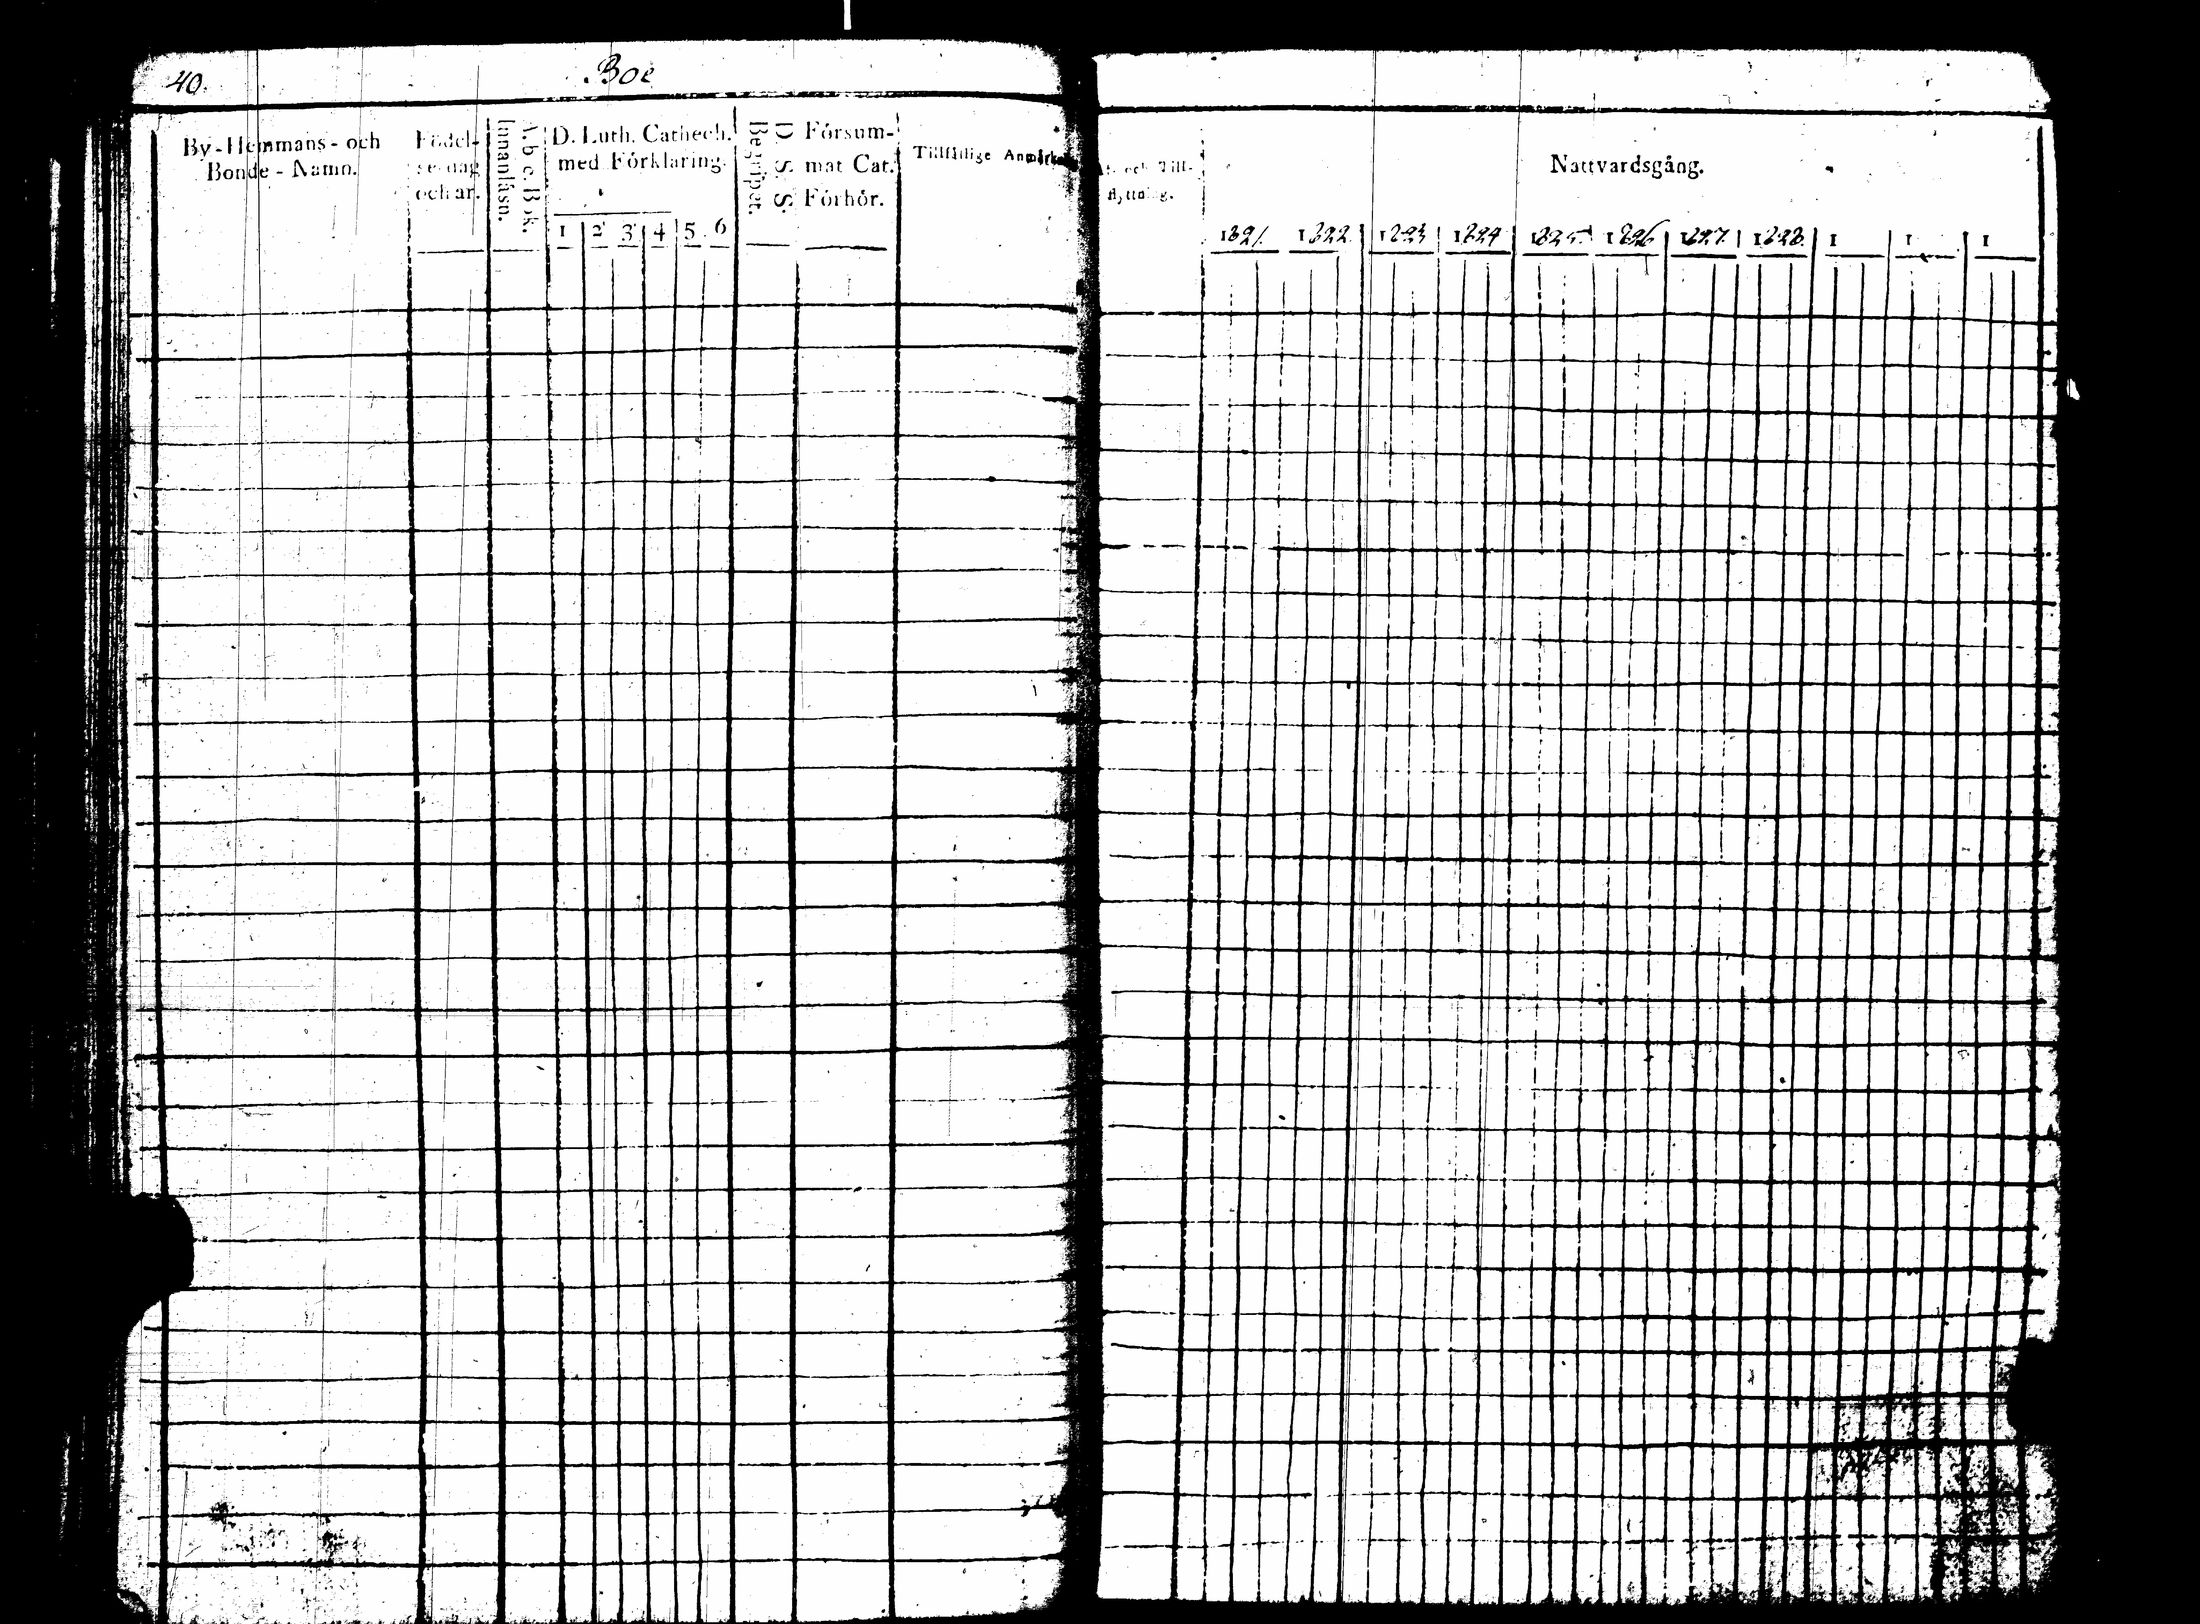 40.
Boe
By-Hemmans- och
Bonde-Namn.
Födel-
sedag
och år.
A. b. c. Bok.
Innanläsn.
D. Luth. Cathech.
med Förklaring.
1 2 3 4 5 6
D. S. S.
Begripet.
Försum-
mat Cat.
Förhör.
Tillfällige Anmärk
Af- och Till-
flyttning.
Nattvardsgång.
1821. 1822. 1823 1824 1825. 1826 1827. 1828. 1 1 1